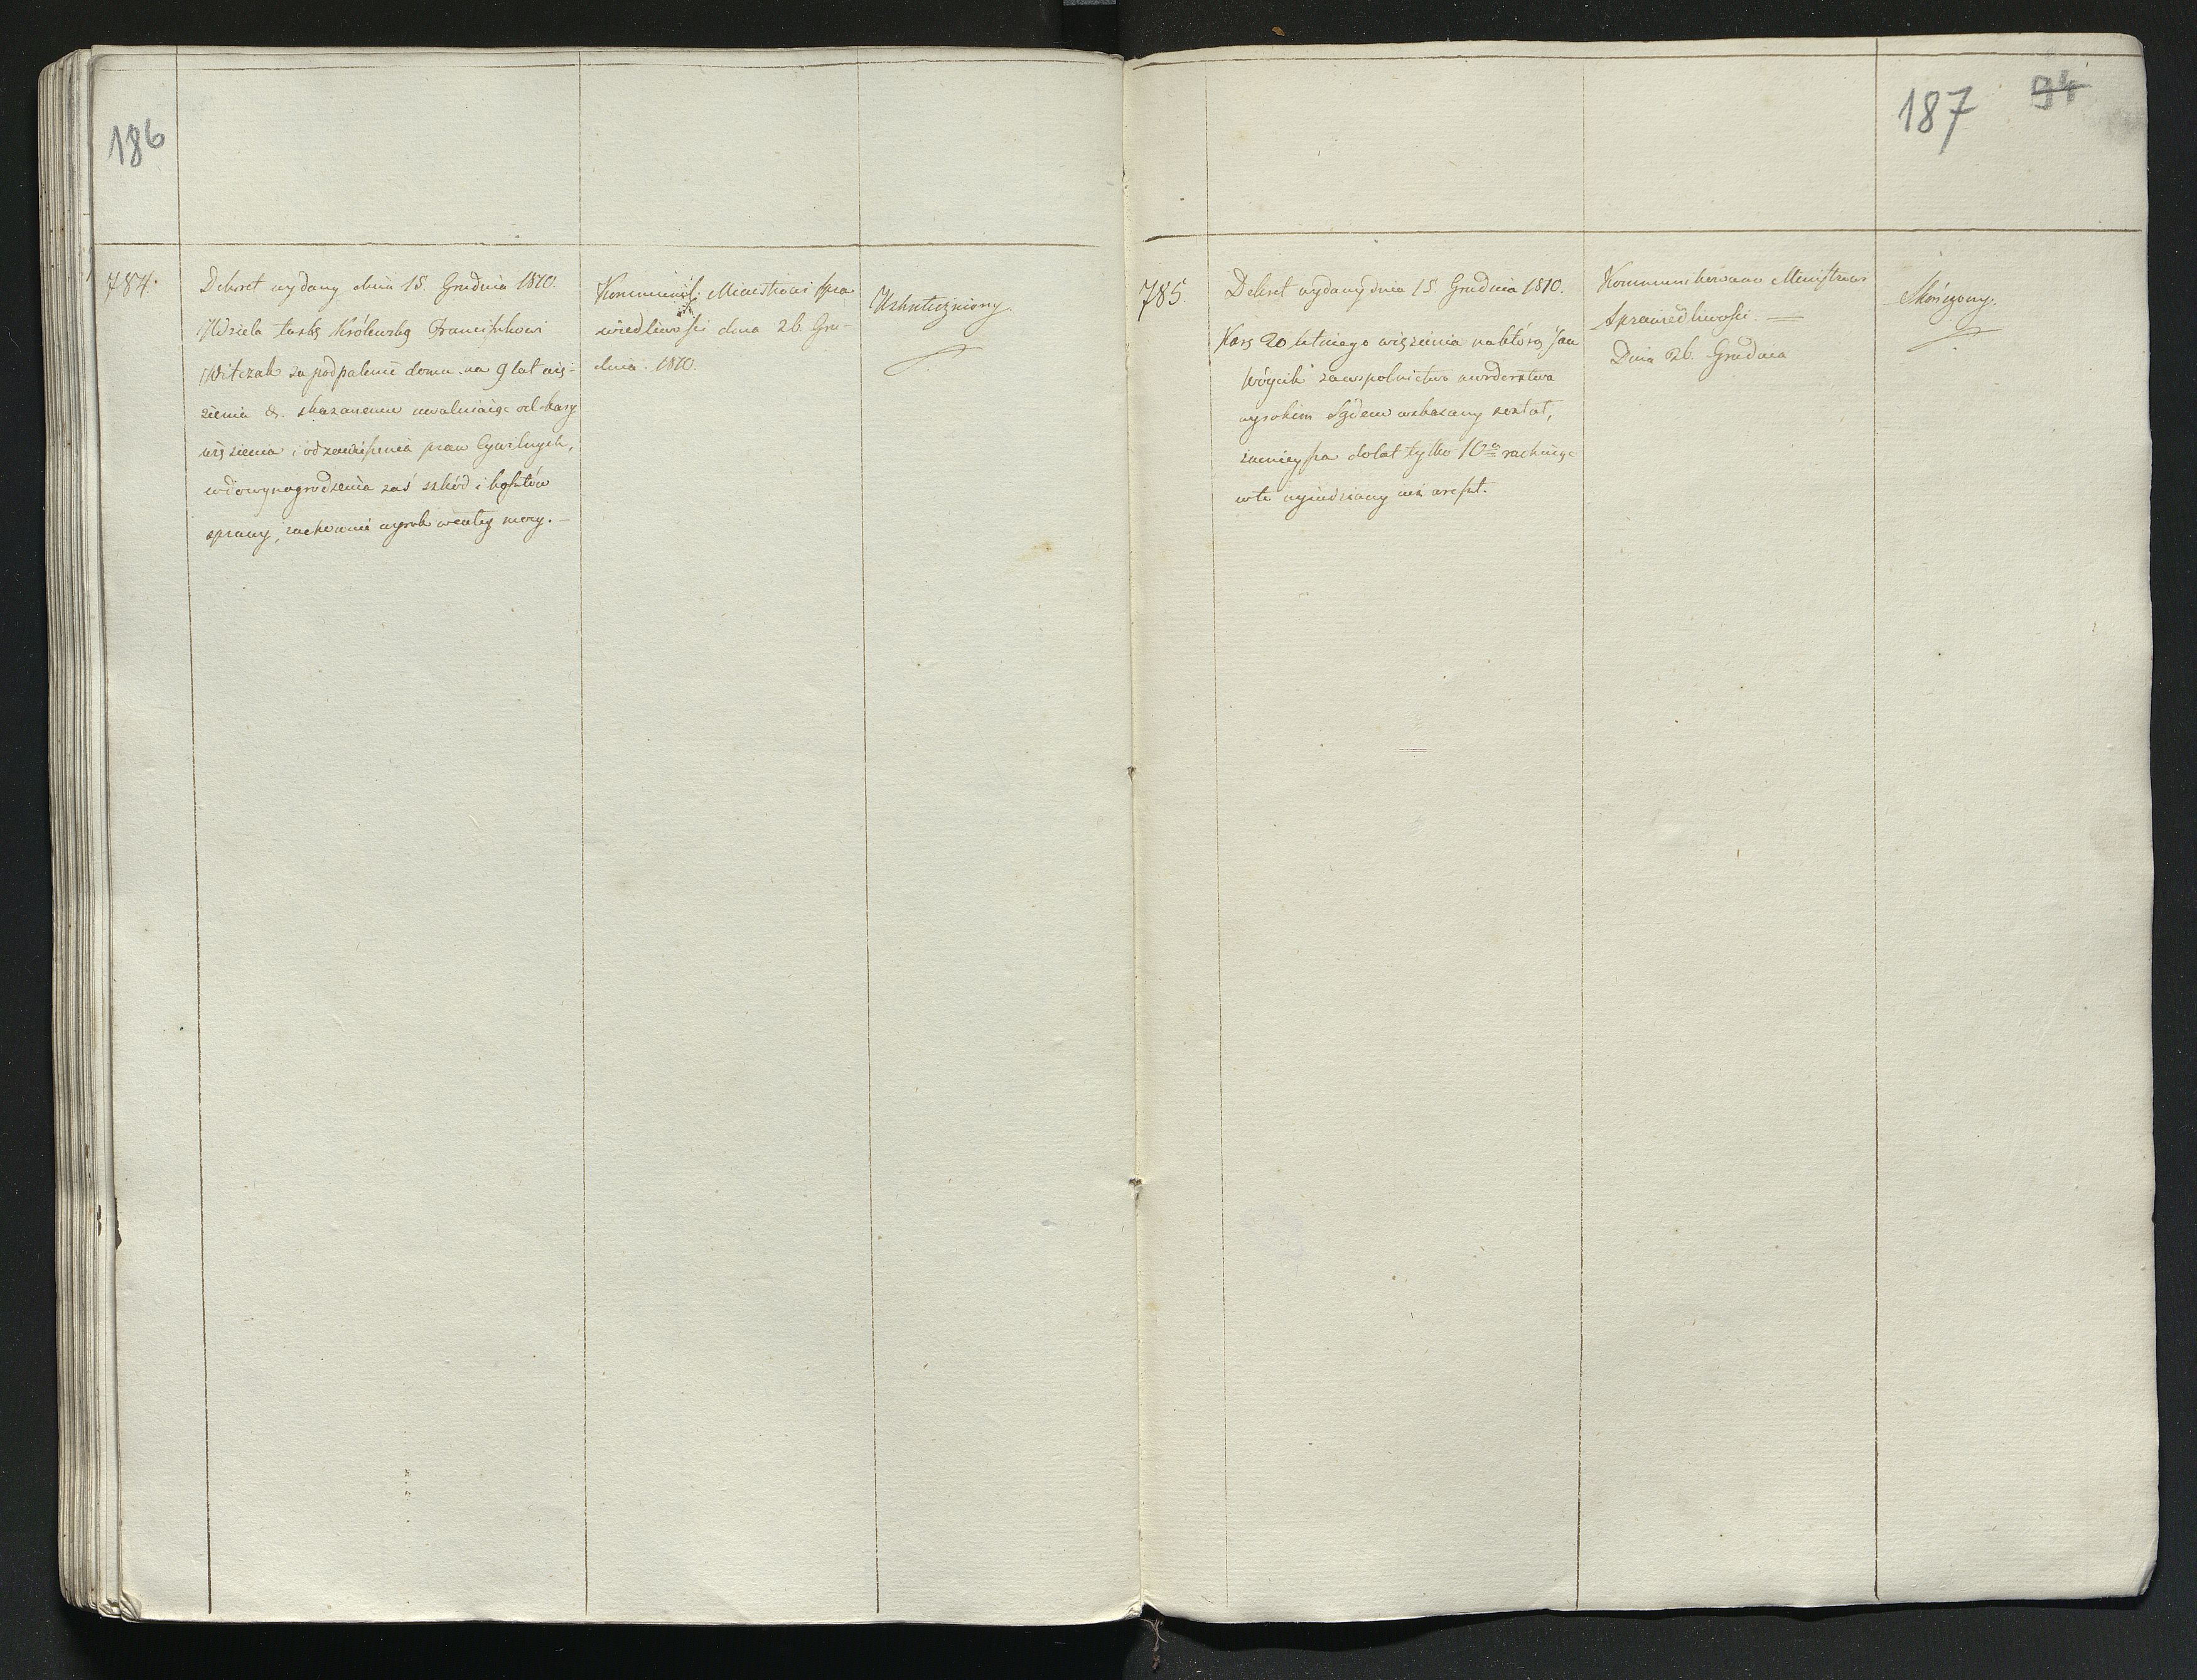 186
784.
Dekret wydany dnia 15. Grudnia 1810.
Udziela łaskę Królewską Franciszkowi
Witczak za podpalenie domu na 9 lat wię-
zienia &. skazanemu uwalniaiąc od kary
więzienia i od zawieszenia praw Cywilnych,
co do wynagrodzenia zaś szkód i kosztów
sprawy, zachowuie wyrok w całey mocy. —
Kommunik: Ministrowi Spra
wiedliwości dnia 26. Gru-
dnia. 1810.
Uskuteczniony
187 94
785.
Dekret wydany dnia 15 Grudnia 1810.
Karę 20 letniego więzienia na którą Jan
Wóycik za wspolnictwo morderstwa
wyrokiem Sądem wskazany został,
zmnieysza do lat tylko 10ciu rachuiąc
w to wysiedziany iuż areszt.
Kommunikowano Ministrowi
Sprawiedliwości. —
Dnia 26. Grudnia
Skończony.